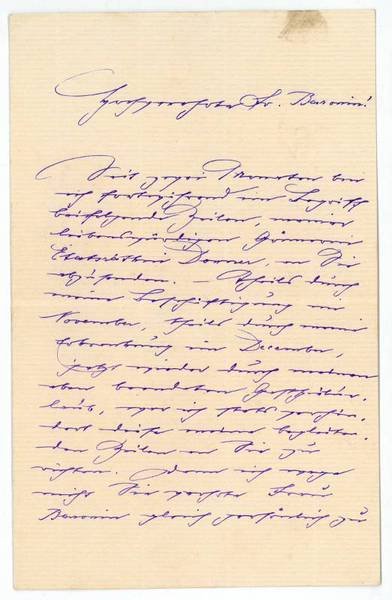 Hochverehrte Fr. Baronin!
Seit zwei Monaten bin
ich fortwährend im Begriff
beifolgende Zeilen, meiner
liebenswürdigen Gönnerin
Etatsrättin Donner, an Sie
abzusenden. – Theils durch
meine Beschäftigung im
November, theils durch meine
Erkrankung im December,
jetzt wieder durch meinen
eben beendeten
laub, war ich stets verhin-
dert diese meine begleiten-
den Zeilen an Sie zu
richten. Denn ich wage
nicht Sie verehrte Frau
Baronin gleich persönlich zu